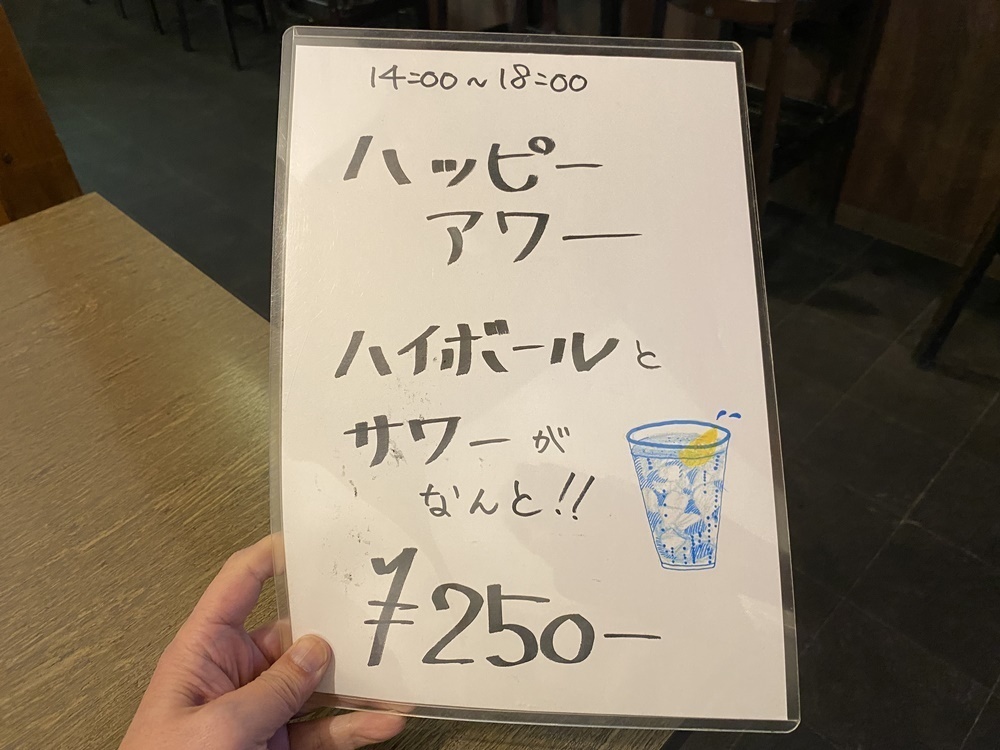 14:00～18:00
ハッピー
アワー
ハイボールと
サワーが
なんと!!
¥250ー